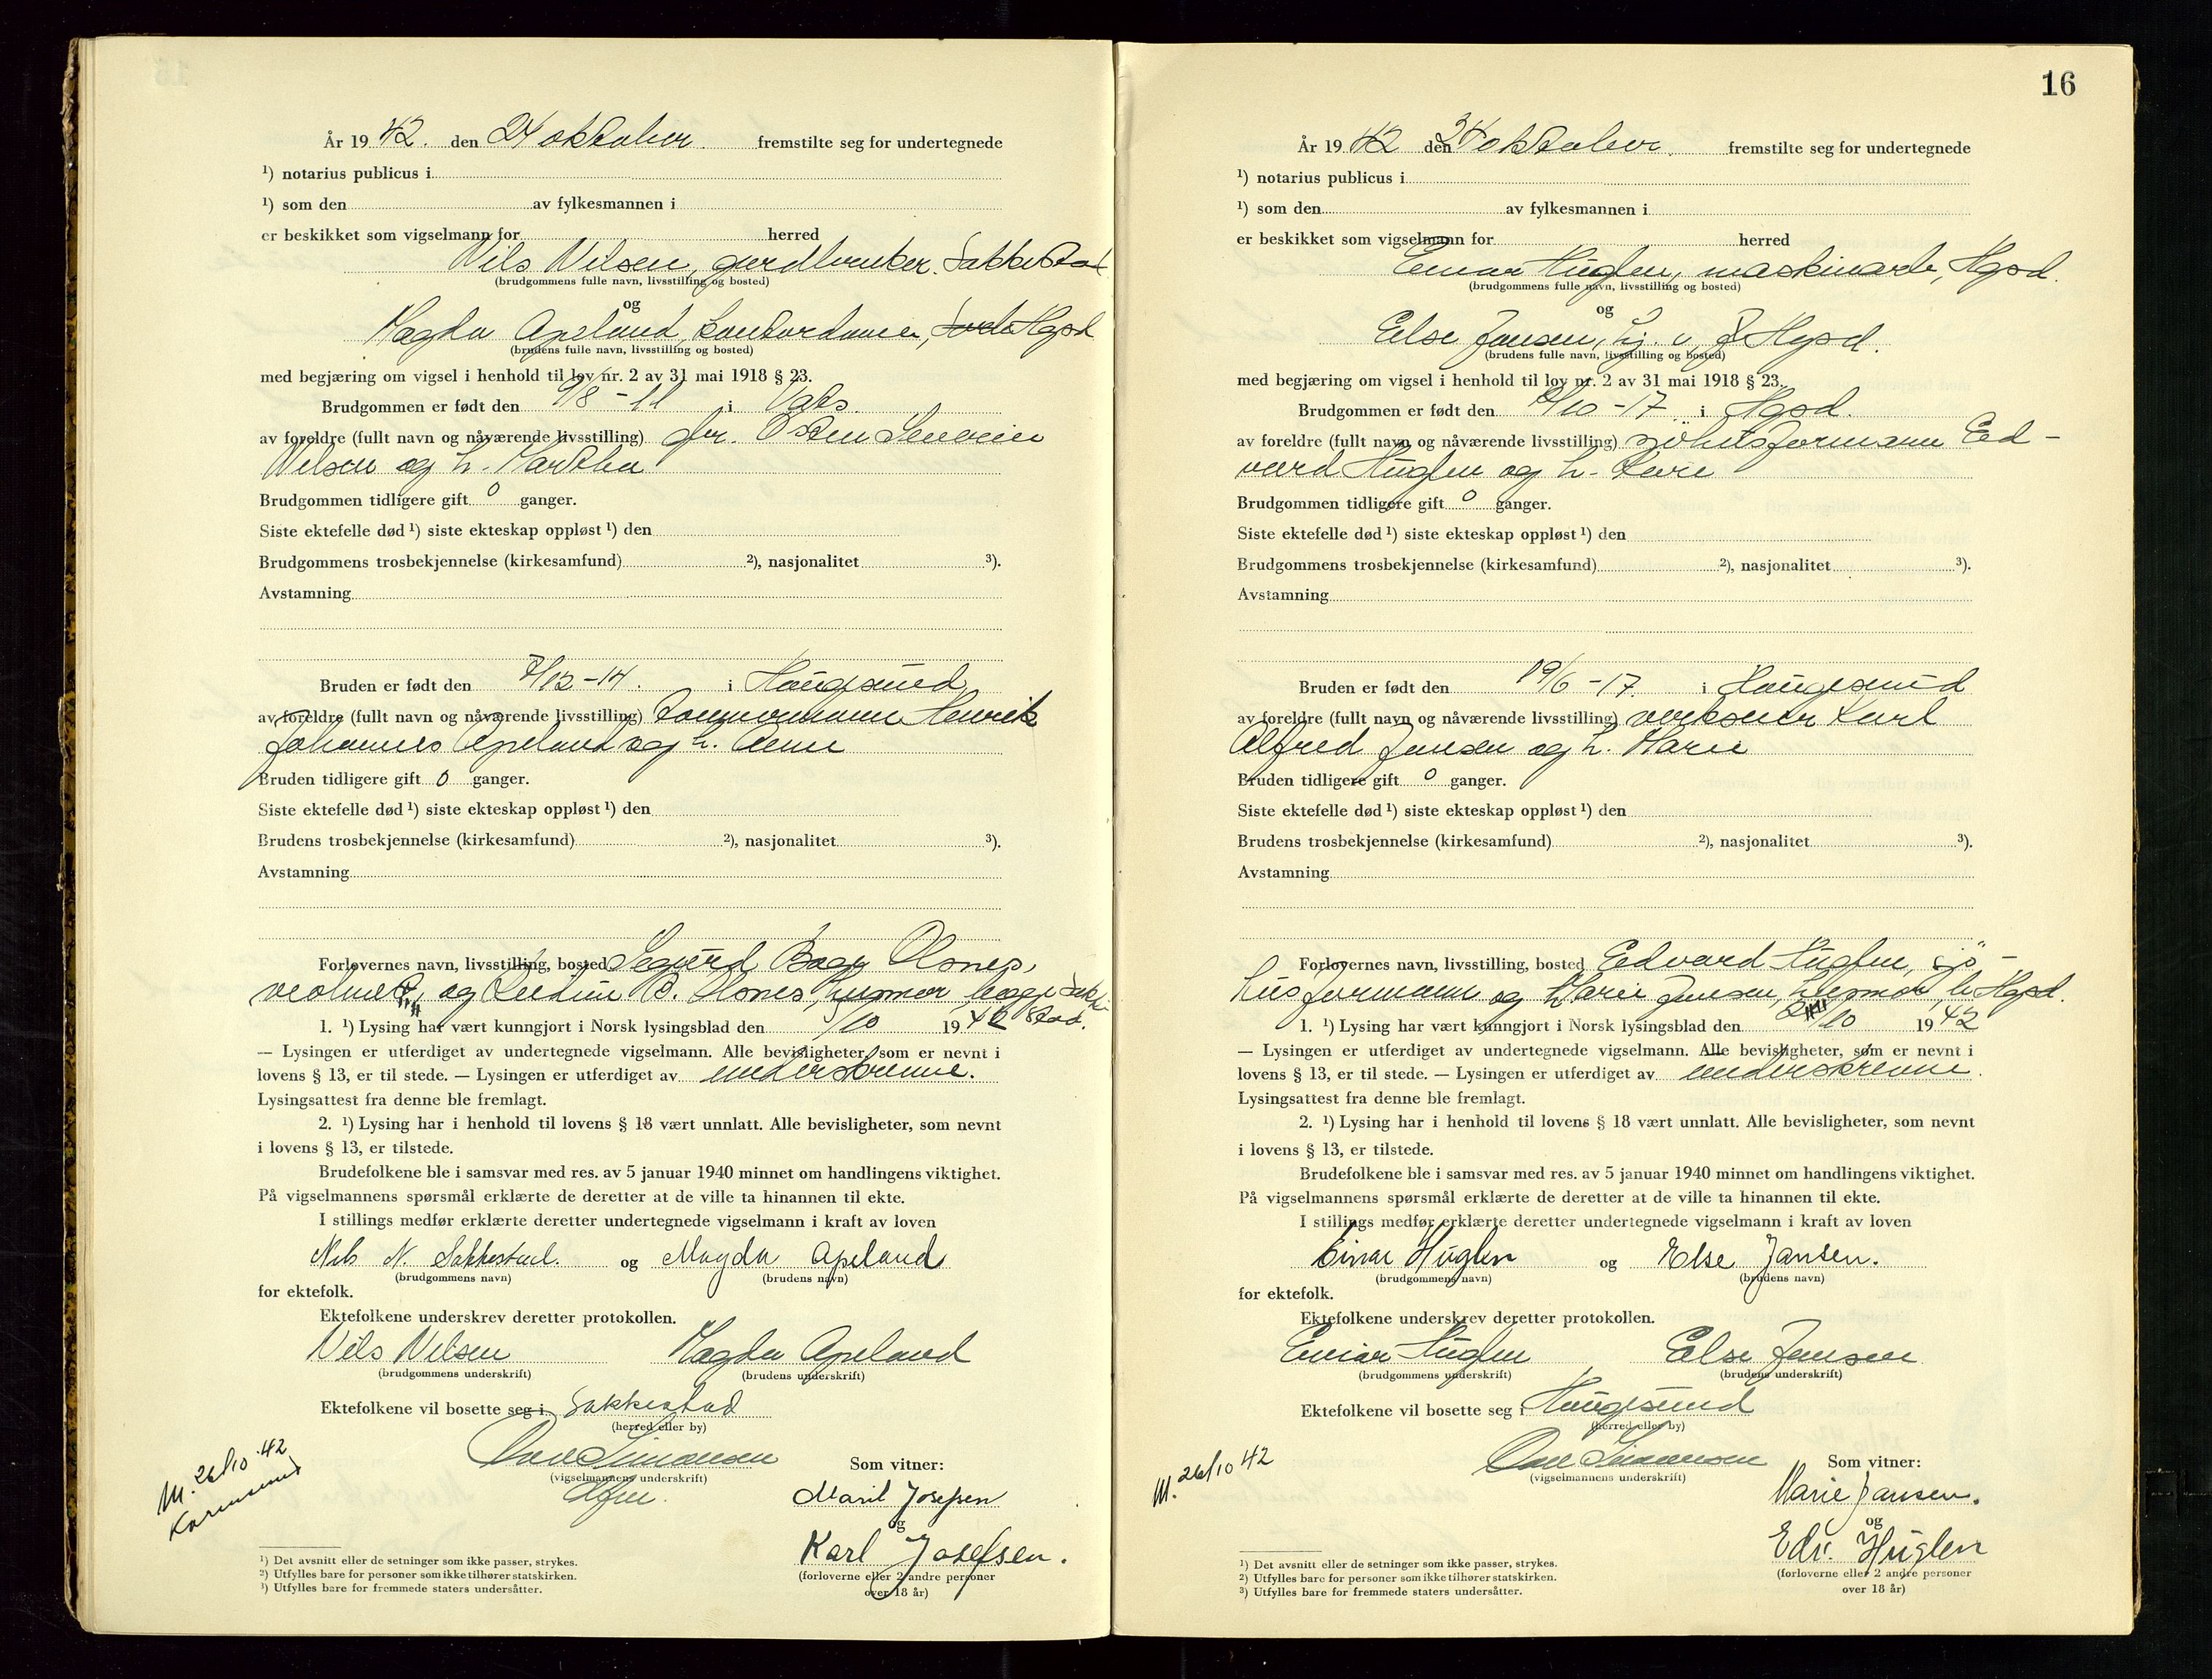 År 19 42. den 24 oktober. fremstilte seg for undertegnede
¹) notarius publicus i
¹) som den av fylkesmannen i
er beskikket som vigselmann for herred
Nils Nilsen, gardbruker, Sakkestad
(brudgommens fulle navn, livsstilling og bosted)
og
Magda Apeland, kontordame, Hgsd
(brudens fulle navn, livsstilling og bosted)
med begjæring om vigsel i henhold til lov nr. 2 av 31 mai 1918 § 23.
Brudgommen er født den /8-11 i Vats.
av foreldre (fullt navn og nåværende livsstilling) gbr. Osten
Nilsen og h. Martha
Brudgommen tidligere gift 0 ganger.
Siste ektefelle død ¹) siste ekteskap oppløst ¹) den
Brudgommens trosbekjennelse (kirkesamfund) ²), nasjonalitet ³).
Avstamning
Bruden er født den 7/12-14. i Haugesund
av foreldre (fullt navn og nåværende livsstilling) tømmermann Henrik
Johannes Apeland og h. Anna
Bruden tidligere gift 0 ganger.
Siste ektefelle død ¹) siste ekteskap oppløst ¹) den
Brudens trosbekjennelse (kirkesamfund) ²), nasjonalitet ³).
Avstamning
Forlovernes navn, livsstilling, bosted Sigurd Olsnes,
og B. Olsnes, husmor, begge Sakke-
1. ¹) Lysing har vært kunngjort i Norsk lysingsblad den 5/10 19 42 stad.
— Lysingen er utferdiget av undertegnede vigselmann. Alle bevisligheter, som er nevnt i
lovens § 13, er til stede. — Lysingen er utferdiget av underskrevne.
Lysingsattest fra denne ble fremlagt.
2. ¹) Lysing har i henhold til lovens § 18 vært unnlatt. Alle bevisligheter, som nevnt
i lovens § 13, er tilstede.
Brudefolkene ble i samsvar med res. av 5 januar 1940 minnet om handlingens viktighet.
På vigselmannens spørsmål erklærte de deretter at de ville ta hinannen til ekte.
I stillings medfør erklærte deretter undertegnede vigselmann i kraft av loven
Nils N. Sakkestad. og Magda Apeland
(brudgommens navn) (brudens navn)
for ektefolk.
Ektefolkene underskrev deretter protokollen.
Nils Nilsen Magda Apeland
(brudgommens underskrift) (brudens underskrift)
Ektefolkene vil bosette seg i Sakkestad
(herred eller by)
Simonsen
(vigselmannens underskrift) Som vitner:
M. 26/10 42
Karmsund
Marit Josefsen
og
Karl Josefsen.
(forloverne eller 2 andre personer
over 18 år)
¹) Det avsnitt eller de setninger som ikke passer, strykes.
²) Utfylles bare for personer som ikke tilhører statskirken.
³) Utfylles bare for fremmede staters undersåtter.
16
År 19 42 den 24 oktober. fremstilte seg for undertegnede
¹) notarius publicus i
¹) som den av fylkesmannen i
er beskikket som vigselmann for herred
Einar Huglen, maskinarb., Hgsd.
(brudgommens fulle navn, livsstilling og bosted)
og
Else Jansen, Hgsd.
(brudens fulle navn, livsstilling og bosted)
med begjæring om vigsel i henhold til lov nr. 2 av 31 mai 1918 § 23.
Brudgommen er født den /10-17 i Hgsd.
av foreldre (fullt navn og nåværende livsstilling) sjöhusformann Ed-
vard Huglen og h. Kari
Brudgommen tidligere gift 0 ganger.
Siste ektefelle død ¹) siste ekteskap oppløst ¹) den
Brudgommens trosbekjennelse (kirkesamfund) ²), nasjonalitet ³).
Avstamning
Bruden er født den 19/6-17. i Haugesund
av foreldre (fullt navn og nåværende livsstilling) verkseier Karl
Alfred Jansen og h. Marie
Bruden tidligere gift 0 ganger.
Siste ektefelle død ¹) siste ekteskap oppløst ¹) den
Brudens trosbekjennelse (kirkesamfund) ²), nasjonalitet ³).
Avstamning
Forlovernes navn, livsstilling, bosted Edvard Huglen, sjö-
husformann og Marie Jansen, husmor, b. Hgsd.
1. ¹) Lysing har vært kunngjort i Norsk lysingsblad den /10 19 42
— Lysingen er utferdiget av undertegnede vigselmann. Alle bevisligheter, som er nevnt i
lovens § 13, er til stede. — Lysingen er utferdiget av underskrevne.
Lysingsattest fra denne ble fremlagt.
2. ¹) Lysing har i henhold til lovens § 18 vært unnlatt. Alle bevisligheter, som nevnt
i lovens § 13, er tilstede.
Brudefolkene ble i samsvar med res. av 5 januar 1940 minnet om handlingens viktighet.
På vigselmannens spørsmål erklærte de deretter at de ville ta hinannen til ekte.
I stillings medfør erklærte deretter undertegnede vigselmann i kraft av loven
Einar Huglen og Else Jansen.
(brudgommens navn) (brudens navn)
for ektefolk.
Ektefolkene underskrev deretter protokollen.
Einar Huglen Else Jansen
(brudgommens underskrift) (brudens underskrift)
Ektefolkene vil bosette seg i Haugesund
(herred eller by)
Simonsen
(vigselmannens underskrift) Som vitner:
M. 26/10 42
Marie Jansen.
og
Edv. Huglen
(forloverne eller 2 andre personer
over 18 år)
¹) Det avsnitt eller de setninger som ikke passer, strykes.
²) Utfylles bare for personer som ikke tilhører statskirken.
³) Utfylles bare for fremmede staters undersåtter.